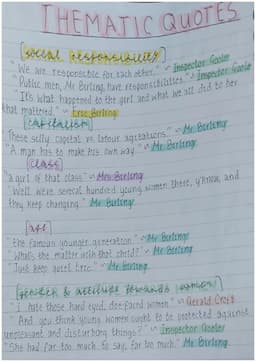 THEMATIC QUOTES
[social responsibilities]
"We are responsible for each other." ~ Inspector Goole
"Public men, Mr Birling, have responsibilities." ~ Inspector Goole
"It's what happened to the girl and what we all did to her
that mattered." ~ Eric Birling
[Capitalism]
"These silly capital vs labour agitations." ~ Mr Birling
"A man has to make his own way." ~ Mr Birling
[Class]
"a girl of that class" ~ Mrs Birling
"Well, were several hundred young women there, y'know, and
they keep changing." Mr Birling
[Age]
"the famous younger generation" ~ Mr Birling
"What's the matter with that child?" ~ Mr Birling
"Just keep quiet Eric" ~ Mr Birling
[Gender & attitude towards women]
"I hate those hard eyed, doe-faced women" ~ Gerald Croft
"And you think young women ought to be protected against
unpleasant and disturbing things?" ~ Inspector Goole
"She had far too much to say, far too much." Mr Birling